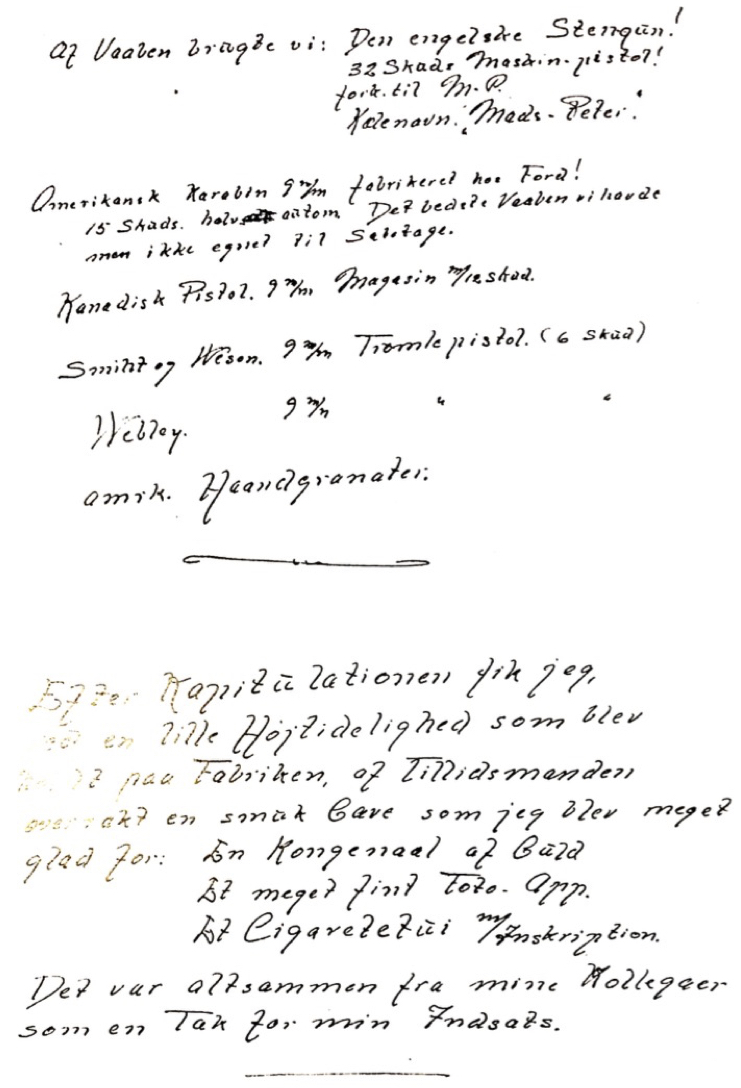 Af Vaaben brugte vi: Den engelske Stengun!
32 Skuds Maskin-pistol!
fork. til M.P.
Kælenavn: "Mads-Peter".
Amerikansk Karabin 9 m/m fabrikeret hos Ford!
15 Skuds. halv autom. Det bedste Vaaben vi havde
men ikke egnet til Sabotage.
Kanadisk Pistol. 9 m/m Magasin m/12 skud.
Smiht og Weson. 9 m/m Tromlepistol. (6 Skud)
Webley. 9 m/m " "
amrk. Haandgranater.
Efter Kapitulationen fik jeg,
ved en lille Højtidelighed som blev
paa Fabriken, af Tillidsmanden
overrakt en smuk Gave som jeg blev meget
glad for: En Kongenaal af Guld
Et meget fint Foto-App.
Et Cigaretetui m/Inskription.
Det var altsammen fra mine Kollegaer
som en Tak for min Indsats.